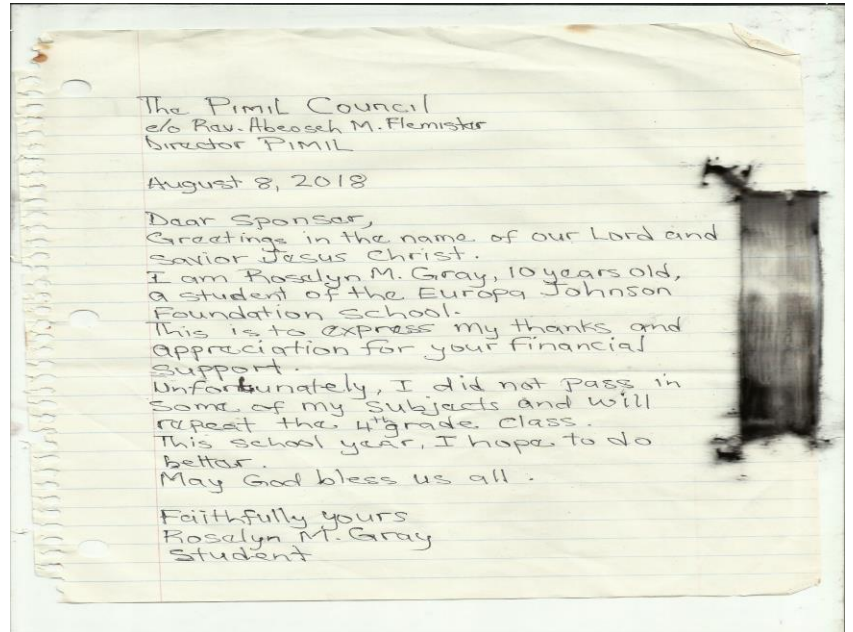 The PIMIL Council
c/o Rev. Abeoseh M. Flemister
Director PIMIL
August 8, 2018
Dear Sponser,
Greetings in the name of our Lord and
Savior Jesus Christ.
I am Rosalyn M. Gray, 10 years old,
a student of the Europa Johnson
Foundation School.
This is to express my thanks and
appreciation for your financial
support.
Unfortunately, I did not pass in
some of my subjects and will
repeat the 4th grade class.
This school year, I hope to do
better.
May God bless us all.
Faithfully yours
Rosalyn M. Gray
Student